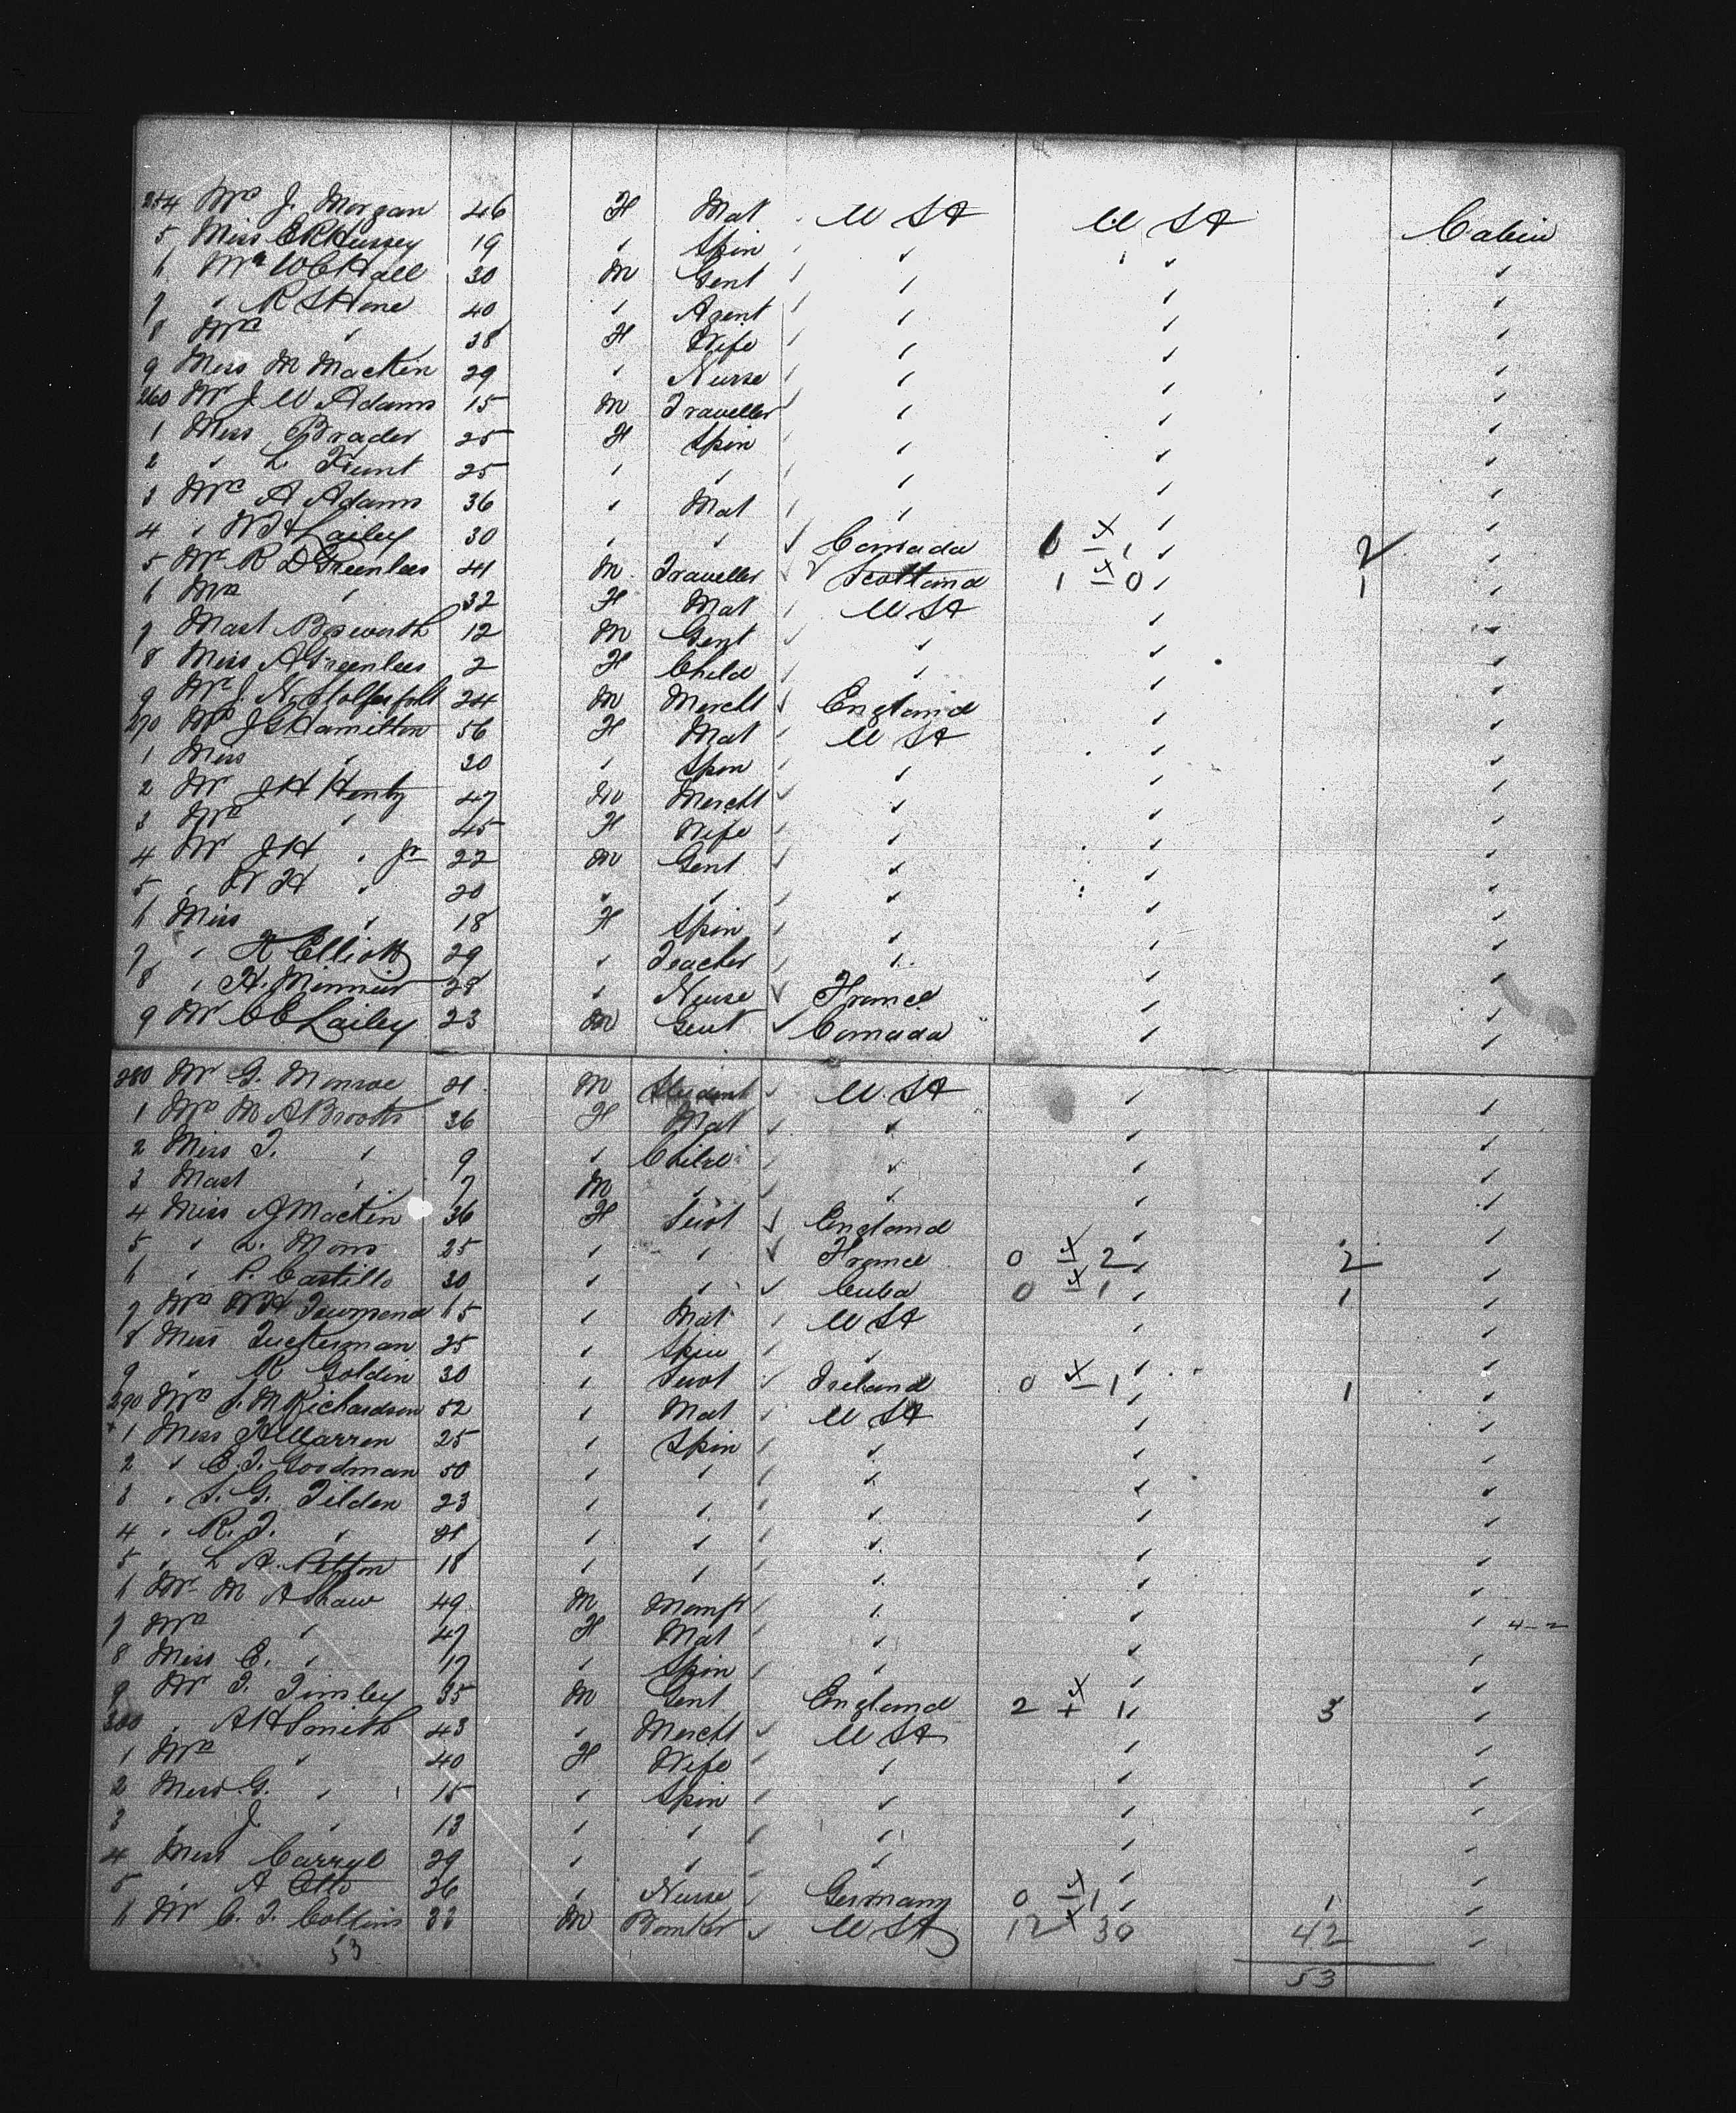 254 Mrs J. Morgan 46 F Mat U S A U S A Cabin
5 Miss E R Hussey 19 " Spin " " "
6 Mr W C Hall 30 M Gent " " "
7 " R S Hone 40 " Agent " " "
8 Mrs " 38 F Wife " " "
9 Miss M Mackin 29 " Nurse " " "
260 Mr J W Adams 15 M Traveller " " "
1 Miss Brader 25 F Spin " " "
2 " L. Frunt 25 " " " " "
3 Mrs A Adams 36 " Mat " " "
4 " Lailey 30 " " Canada 1 x 1 " 2 "
5 Mr R D Greenlees 41 M Traveller Scotland 1 x 0 " 1 "
6 Mrs " 32 F Mat U S A " "
7 Mast Bosworth 12 M Gent " " "
8 Miss A Greenlees 2 F Child " " "
9 Mr J. N. 24 M Mercht England " "
270 Mrs J G Hamilton 56 F Mat U S A " "
1 Miss " 30 " Spin " " "
2 Mr J H Henty 47 M Mercht " " "
3 Mrs " 45 F Wife " " "
4 Mr J H " Jr 22 M Gent " " "
5 " W H " 20 " " " " "
6 Miss " 18 F Spin " " "
7 " F Elliott 29 " Teacher " " "
8 " H. Minnier 28 " Nurse France " "
9 Mr C C Lailey 23 M Gent Canada " "
280 Mr G. Monroe 21 M Student U.S.A " "
1 Mrs M A Brooks 36 F Mat " " "
2 Miss T. " 9 " Child " " "
3 Mast " 7 M " " " "
4 Miss A Mackin 36 F Svot England " "
5 " L. Mons 25 " " France 0 x 2 " 2 "
6 " P. Castillo 30 " " Cuba 0 x 1 " 1 "
7 Mrs Townsend 65 " Mat U S A " "
8 Miss Tuckerman 25 " Spin " " "
9 " R Goldin 30 " Svot Ireland 0 x 1 " 1 "
290 Mrs J. M Richardson 52 " Mat U S A " "
1 Miss A Warren 25 " Spin " " "
2 " E. T. Goodman 50 " " " " "
3 " S. G. Tilden 23 " " " " "
4 " R. T. " 21 " " " " "
5 " L A. Pelton 18 " " " " "
6 Mr M A Shaw 49 M Manfr " " "
7 Mrs " 47 F Mat " " " 4-2
8 Miss E. " 17 " Spin " " "
9 Mr T. Timsley 35 M Gent England 2 x 1 " 3 "
300 " A H Smith 43 " Mercht U S A " "
1 Mrs " 40 F Wife " " "
2 Miss G. " 15 " Spin " " "
3 " J. " 13 " " " " "
4 Miss Carryl 29 " " " " "
5 " A Otto 26 " Nurse Germany 0 x 1 " 1 "
6 Mr C. T. Collins 33 M Banker U S A 12 x 30 42 "
53 53